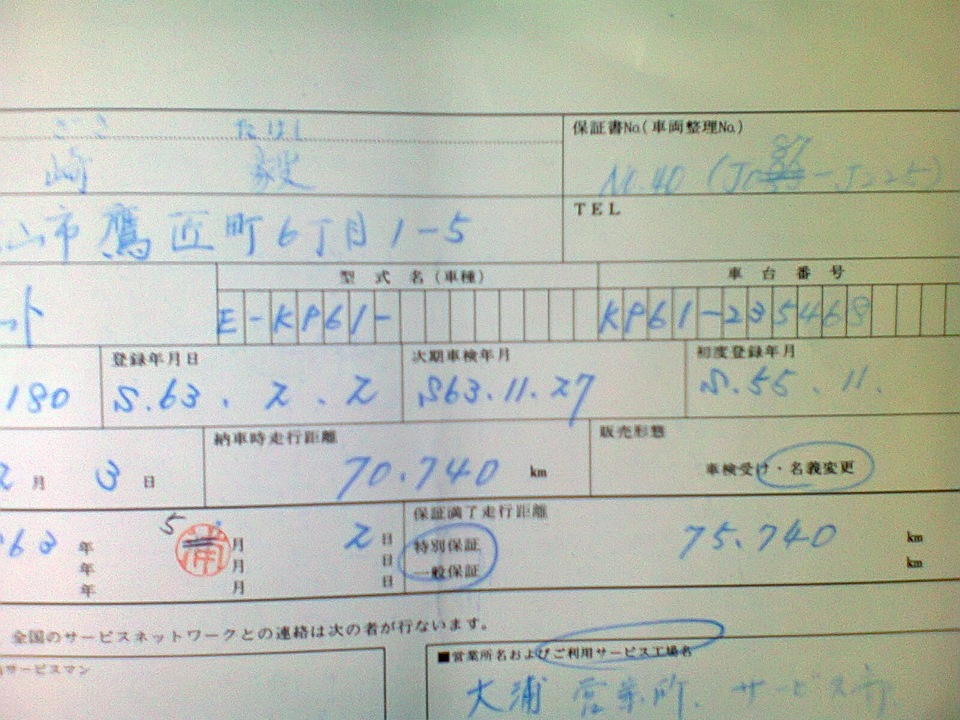 ざき たけし 保証書No.(車両整理No.)
崎 毅
TEL
山市鷹匠町6丁目1-5
型式名(車種) 車台番号
ット E-KP61- KP61-235468
登録年月日 次期車検年月 初度登録年月
180 S.63.2.2 S63.11.27 S.55.11.
納車時走行距離 販売形態
2月3日 70.740 km 車検受け・名義変更
保証満了走行距離
63年 5月 2日 特別保証 75.740 km
年 月 日 一般保証 km
年 月 日
全国のサービスネットワークとの連絡は次の者が行ないます。
サービスマン ■営業所名およびご利用サービス工場名
大浦 営業所. サービス部